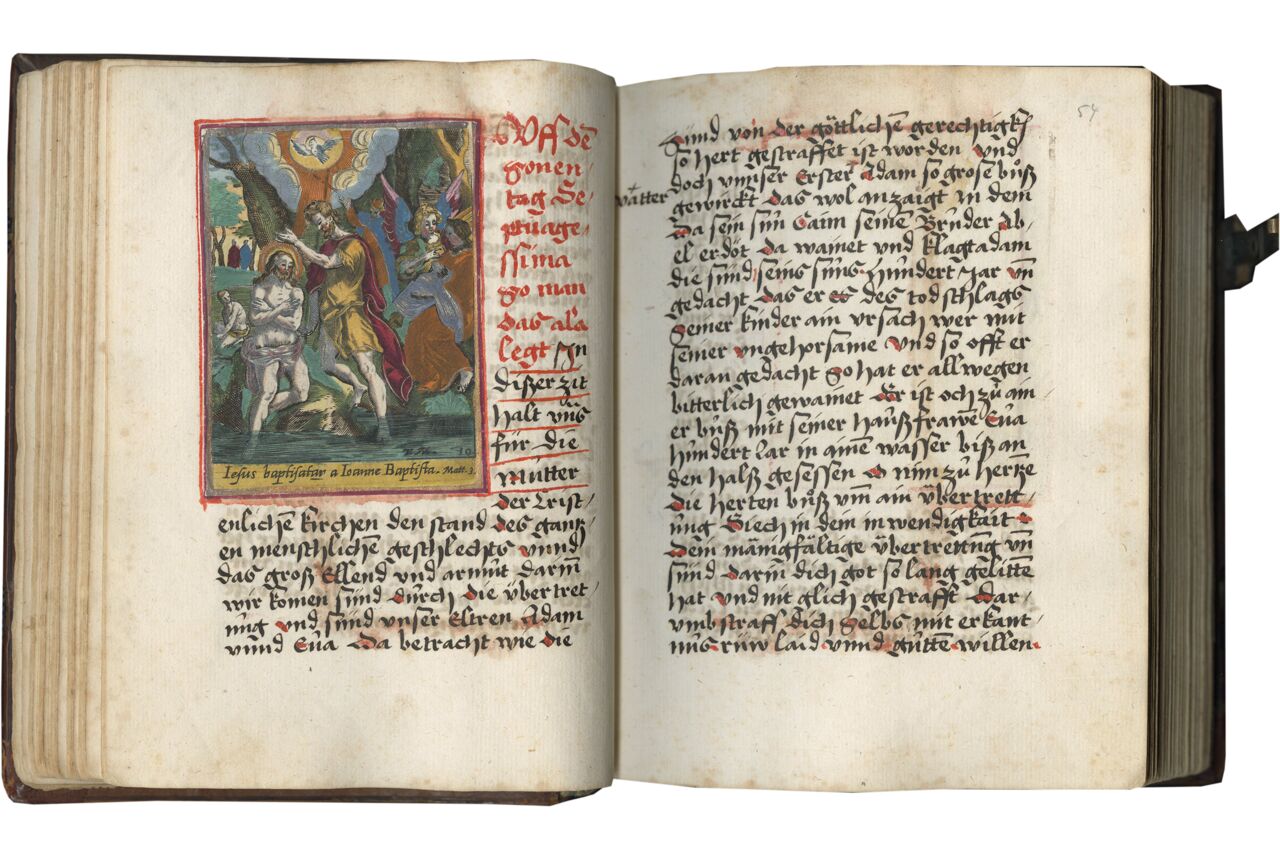 Uff dē
sonen
tag Se
ptuage
ssima
so man
das al'a
legt Jn
dißer zit
halt vn̄s
für die
mutter
der Crist
enlichē kirchen den stand des gantz
en menschlichē geschlechts vnnd
das groß Ellend vnd armut darin̄
wir komen sind durch die übertret
ung vnd sünd vnser Eltren Adam
vnnd Eua Da betracht wie die
Iesus baptisatur a Ioanne Baptista. Matt. 3.
10
54
sünd von der göttlichē gerechtigkē
so hert gestraffet ist worden vnd
doch vnnser Erster Adam so grose buͦß
vatter
gewirckt das wol anzaigt in dem
Da sein sun Caim seinē Bruder Ab
el erdöt da wainet vnd klagt adam
die sünd seins suns hundert Jar vn̄
gedacht das er es des todschlags
seiner kinder ain vrsach wer mit
seiner vngehorsame vnd so offt er
daran gedacht So hat er allwegen
bitterlich gewainet Er ist och zuͦ ain
er buͦß mit seiner haußfrawē Eua
hundert Iar in ainē wasser biß an
den halß gesessen O nim zuͦ hertze
die herten buͦß vm̄ ain übertrett
ung Siech in dein inwendigkait
Dein mānigfältige übertrettūg vn̄
sünd darin̄ dich got so lang gelitte
hat vnd nit glich gestrafft Dar
vmb straff dich selbs mit erkant
nus rüw laid vnnd guͦttē willen